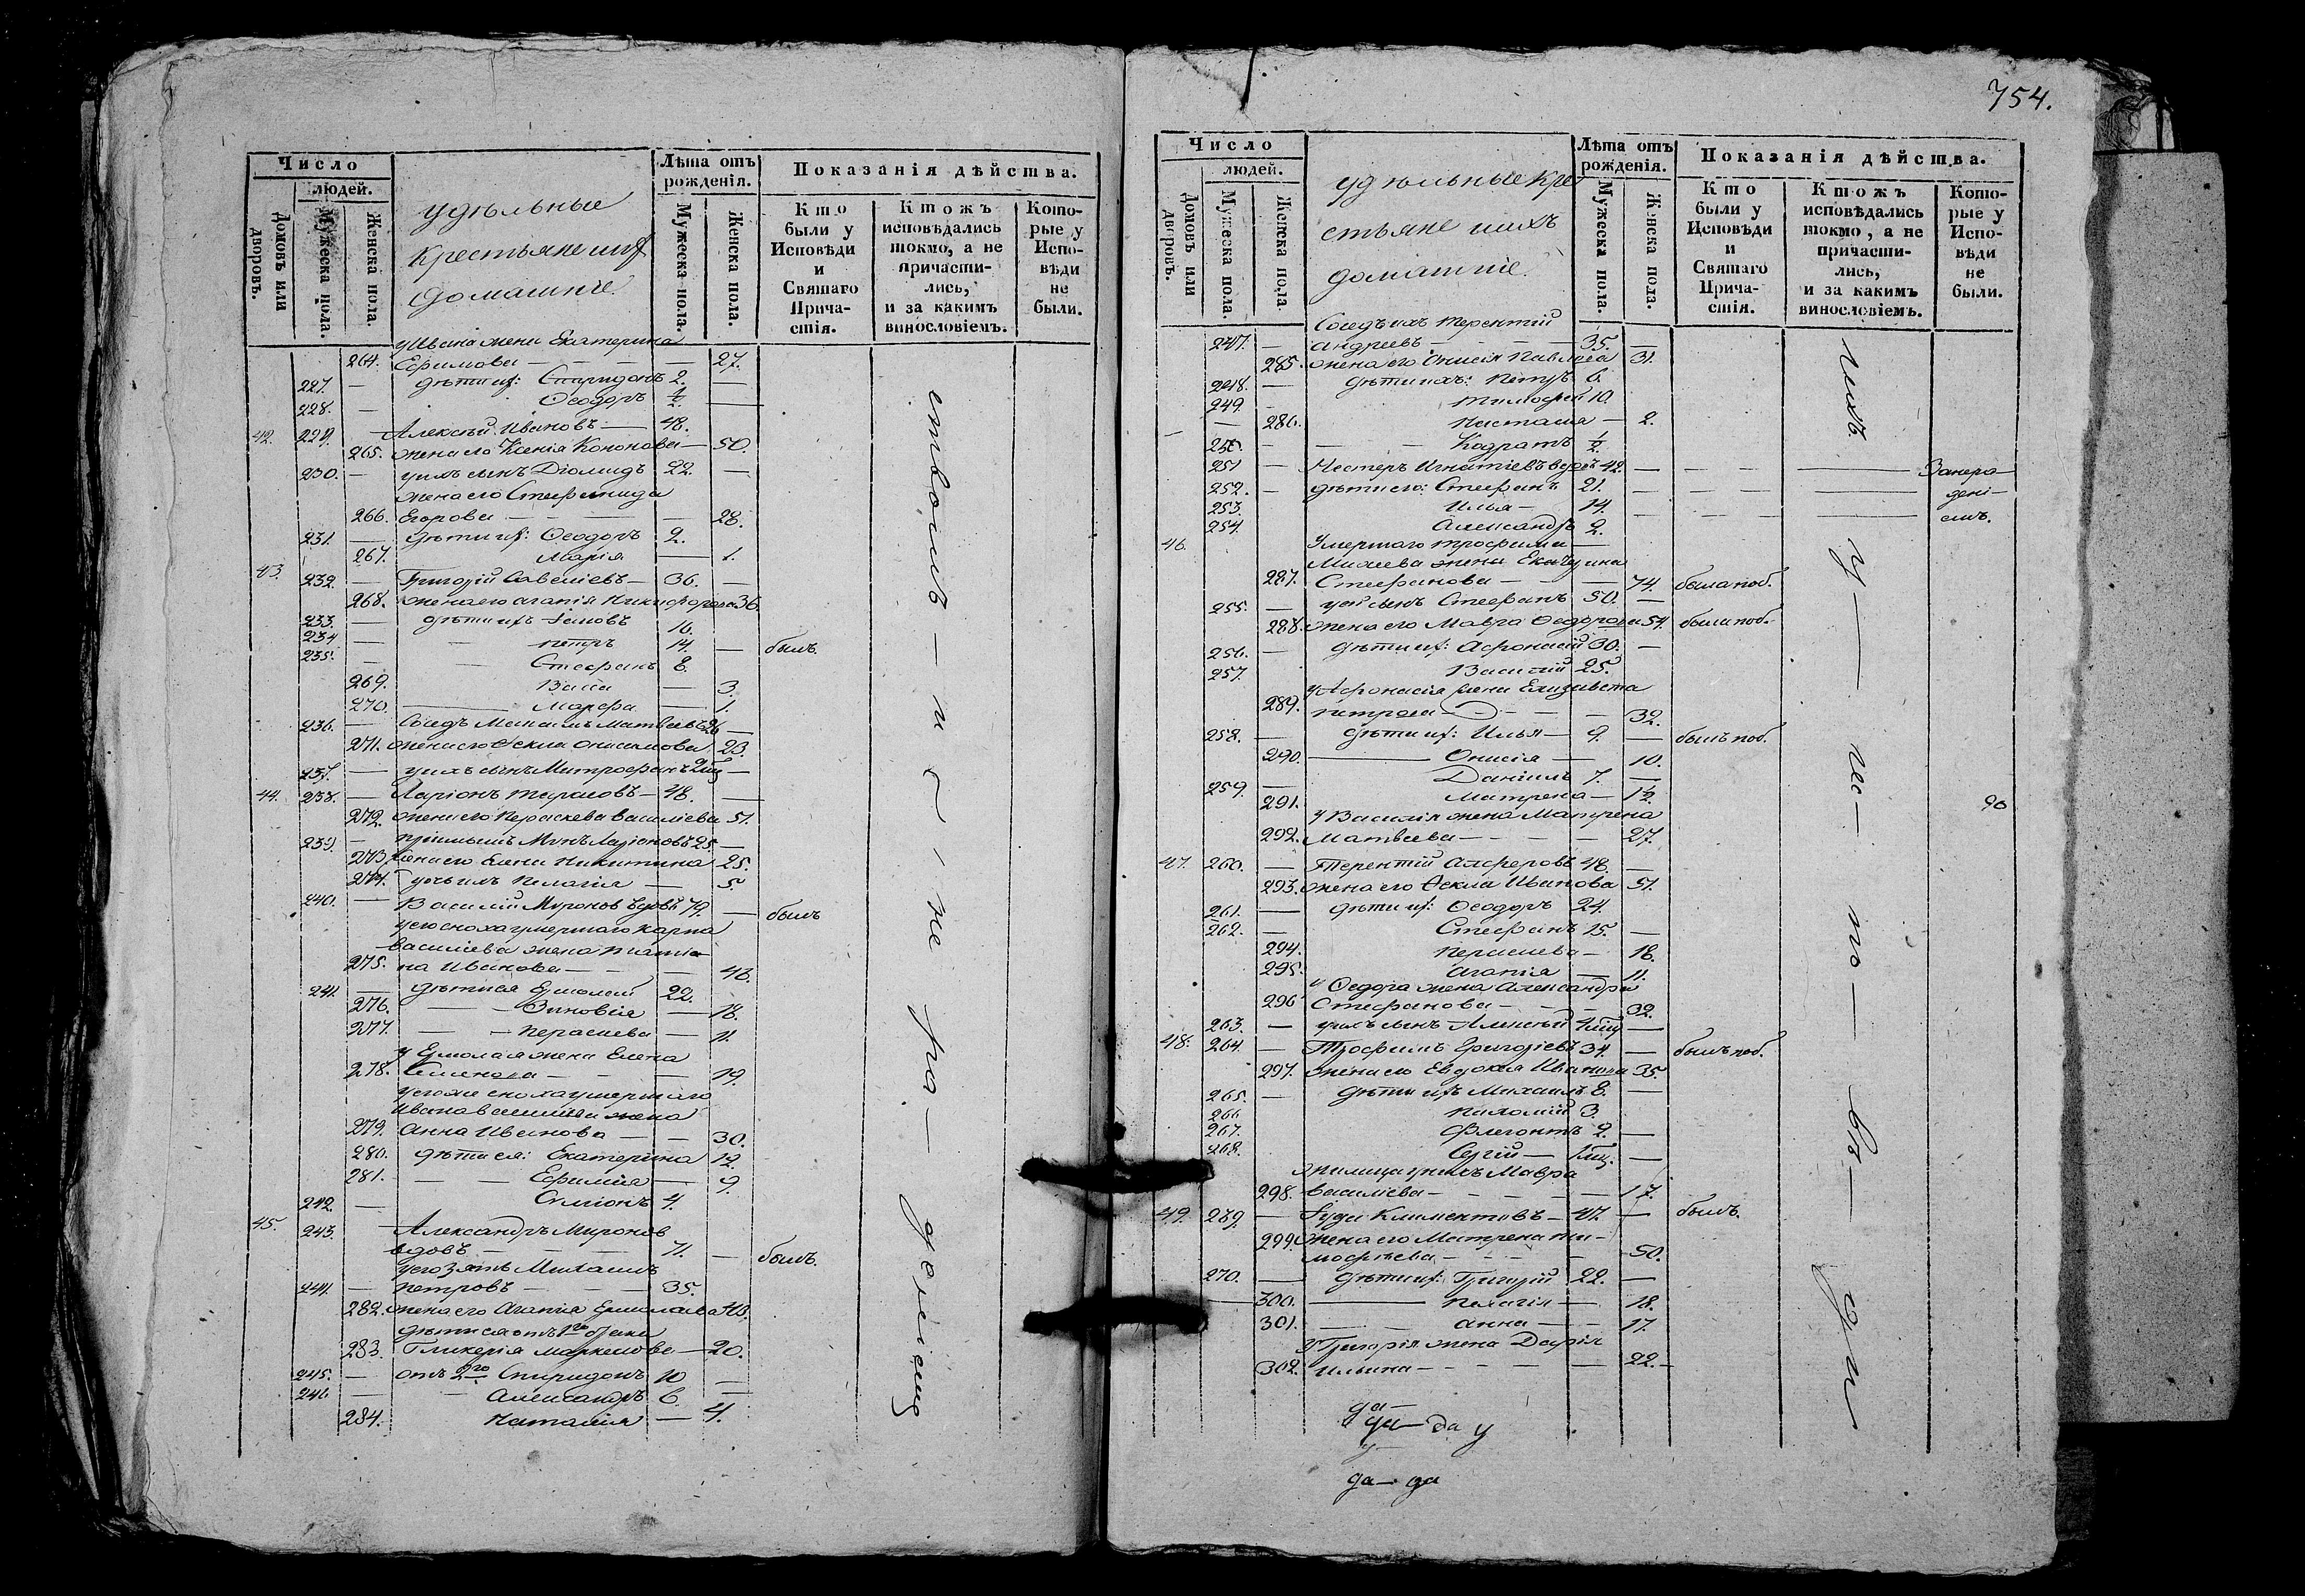 Число
людей.
Домовъ или дворовъ.
Мужеска пола.
Женска пола.
удѣльные
крестьяне ихъ
домашніе.
Лѣта отъ рожденія.
Мужеска пола.
Женска пола.
Показанія дѣйства.
Кто были у Исповѣди и Святаго Причастія.
Ктожъ исповѣдались токмо, а не причастились, и за какимъ винословіемъ.
Которые у Исповѣди не были.
у Ивана жена Екатерина
264. Ефимова 27.
227. дѣти их: Спиридонъ 2.
228. Ѳеодоръ ½
42. 229. Алексѣй Ивановъ 48.
265. жена его Ксенія Кононова 50.
230. у нихъ сынъ Діомидъ 22.
жена его Стефанида
266. Егорова 28.
231. дѣти их: Ѳеодоръ 2.
267. Марія 1.
43. 232. Григорій Савеліевъ 36.
268. жена его Агапія Никифорова 36.
233. дѣти ихъ Іаковъ 16.
234 Петръ 14. былъ.
235. Стефанъ 8.
269. Васса 3.
270. Марѳа 1.
236. Сосѣдъ Максимъ Матвѣевъ 26
271. жена его Ѳекла Онисимова 23.
237. у нихъ сынъ Митрофанъ
44. 238. Ларіонъ Тарасовъ 48.
272. жена его Параскева Василіева 51.
239. Ларіоновъ 25.
273. жена его Елена Никитина 25.
274. дочь ихъ Пелагія 5.
240. Василій Мироновъ вдовъ 79. былъ
у его сноха умершаго Карпа
Василіева жена Татіа-
275. на Иванова 43.
241. дѣти ея Ермолай 22.
276. Зиновія 18.
277. Параскева 11.
у Ермолая жена Елена
278. Семенова 19.
у его же сноха умершаго
Ивана Василіева жена
279. Анна Иванова 30.
280. дѣти ея: Екатерина 12.
281. Ефимія 9.
242. Симіонъ 4.
45. 243. Александръ Мироновъ
вдовъ 71. былъ.
у его зять Михаилъ
244. Петровъ 35.
282. жена его Агапія Ермолаева 43.
дѣти ея отъ 1го брака
283. Гликерія Маркелова 20.
245. отъ 2го Спиридонъ 10
246. Александръ 6.
284. Наталія 4.
ствомъ — и — не — ра — дѣніемъ
754.
Число
людей.
Домовъ или дворовъ.
Мужеска пола.
Женска пола.
удѣльные кре
стьяне ихъ
домашніе.
Лѣта отъ рожденія.
Мужеска пола.
Женска пола.
Показанія дѣйства.
Кто были у Исповѣди и Святаго Причастія.
Ктожъ исповѣдались токмо, а не причастились, и за какимъ винословіемъ.
Которые у Исповѣди не были.
Сосѣдъ ихъ Терентій
247. Андреевъ 35.
285. жена его Онисія Павлова 31.
248. дѣти ихъ: Петръ 6.
249. Тимофей 10.
286. Настасія 2.
250. Кодратъ ½
251 Нестеръ Игнатіевъ вдовъ 42. За нера
252. дѣти его: Стефанъ 21. дені-
253. Илья 14. емъ.
254. Александръ 2.
46. Умершаго Трофима
Михеева жена Екатерина
287. Стефанова 74. была поб.
255. у ней сынъ Стефанъ 50.
288. жена его Мавра Ѳеодорова 54. была поб.
256. дѣти их: Афонасій 30.
257. Василій 25.
у Афонасія жена Елизавета
289. Петрова 32.
258. дѣти их: Илья 9. былъ поб.
290. Онисія 10.
259. Даніилъ 7.
291. Матрена 1½.
у Василія жена Матрена
292. Матвѣева 27.
47. 260. Терентій Алферовъ 48.
293. жена его Ѳекла Иванова 51.
261. дѣти их: Ѳеодоръ 24.
262. Стефанъ 15.
294. Параскева 18.
295. Агапія 11.
у Ѳеодора жена Александра
296 Стефанова 32.
263. у нихъ сынъ Алексѣй
48. 264. Трофимъ Григоріевъ 34. былъ поб.
297. жена его Евдокія Иванова 35.
265. дѣти ихъ Михаилъ 8.
266 Пахомій 3.
267. Флегонтъ 2.
268. Сергій
у нихъ Мавра
298. Василіева 17.
49. 269. Іуда Климентовъ 47. былъ.
299. жена его Матрена Ти-
мофѣева 50.
270. дѣти их: Григорій 22.
300. Пелагія 18.
301. Анна 17.
у Григорія жена Дарія
302. Ильина 22.
да —
да — да у
у
да — да